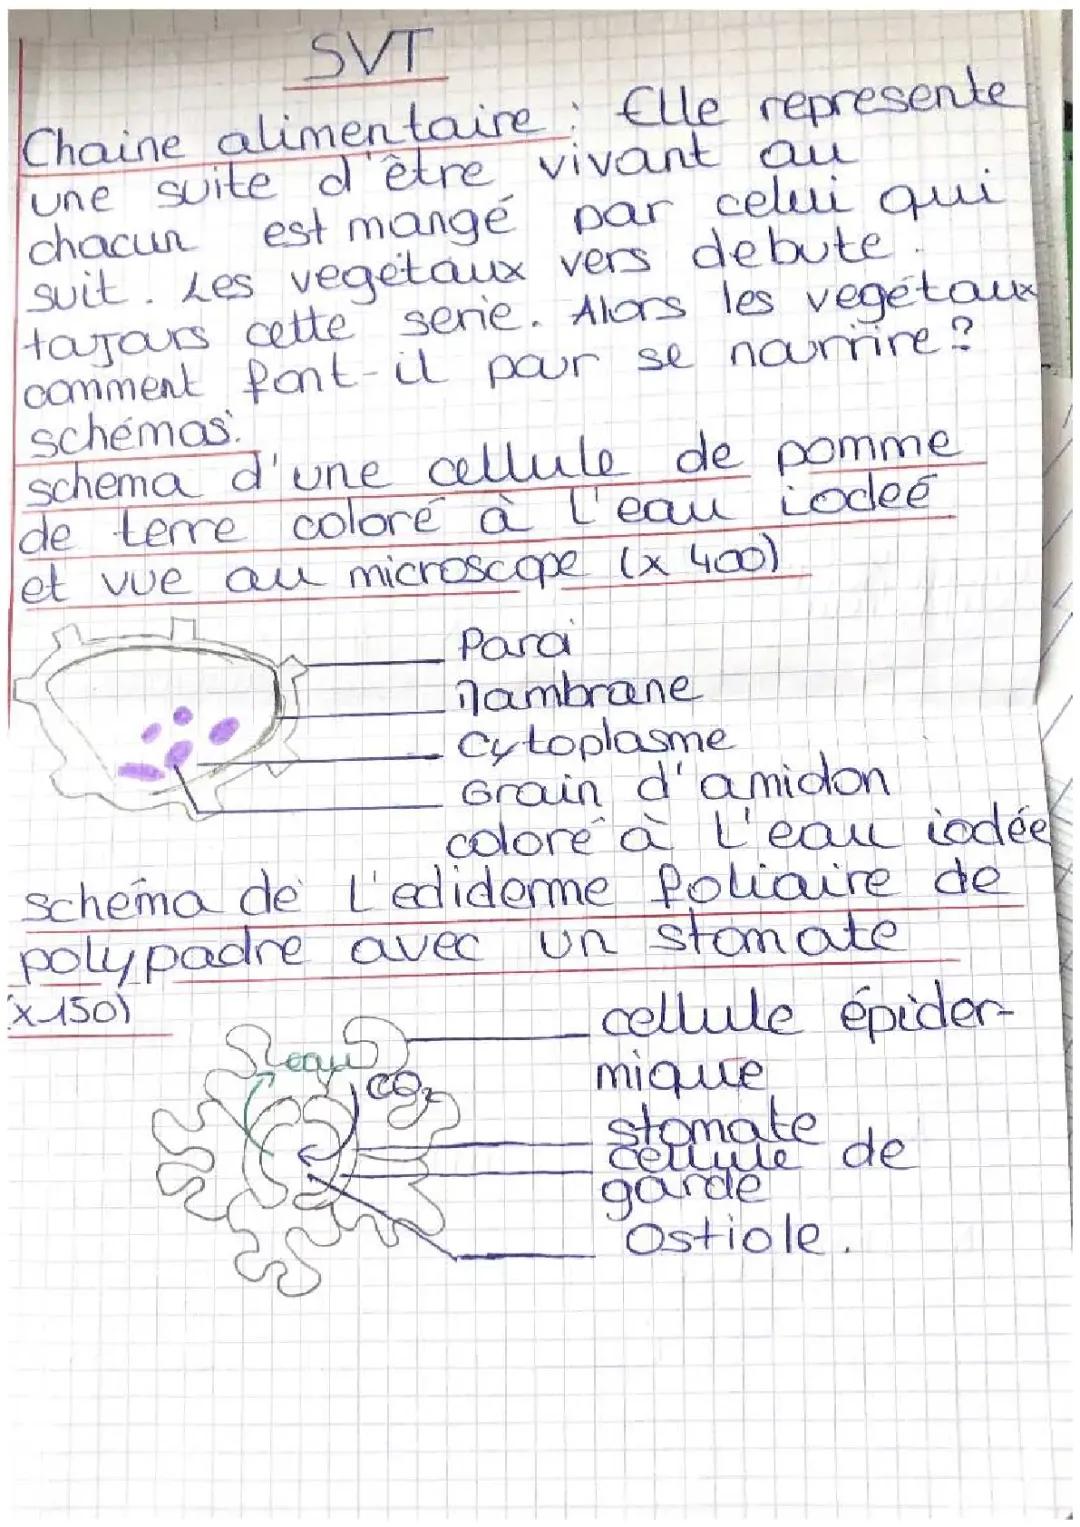 SVT
Chaine alimentaire : Elle represente
une suite d'être vivant au
chacun est mangé par celui qui
suit. Les vegétaux vers debute.
tajours cette serie. Alors les vegétaux
comment font-il pour se nourrire?
schémas:
schema d'une cellule de pomme
de terre coloré à l'eau iodeé
et vue au microscope (x 400)
Paroi
Mambrane
Cytoplasme
Grain d'amidon
coloré à l'eau iodée
schéma de l'ediderme foliaire de
polypadre avec un stomate
(x150)
cellule épider-
mique
eau
CO2
stomate
cellule de
garde
Ostiole.